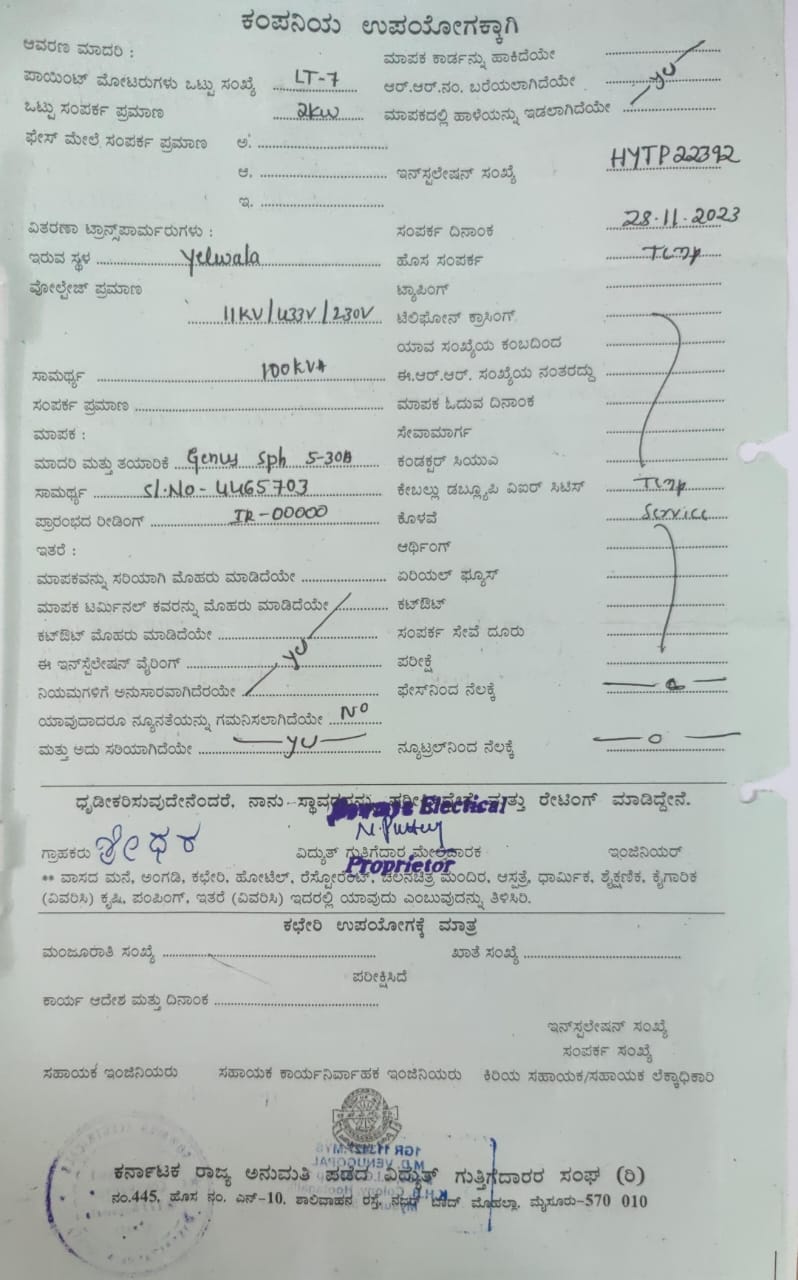 ಕಂಪನಿಯ ಉಪಯೋಗಕ್ಕಾಗಿ
ಆವರಣ ಮಾದರಿ :
ಮಾಪಕ ಕಾರ್ಡನ್ನು ಹಾಕಿದೆಯೇ
ಪಾಯಿಂಟ್ ಮೋಟರುಗಳು ಒಟ್ಟು ಸಂಖ್ಯೆ LT-7
ಆರ್.ಆರ್.ನಂ. ಬರೆಯಲಾಗಿದೆಯೇ
ಒಟ್ಟು ಸಂಪರ್ಕ ಪ್ರಮಾಣ 2kw
ಮಾಪಕದಲ್ಲಿ ಹಾಳೆಯನ್ನು ಇಡಲಾಗಿದೆಯೇ
ಫೇಸ್ ಮೇಲೆ ಸಂಪರ್ಕ ಪ್ರಮಾಣ ಅ.
ಆ.
ಇನ್‌ಸ್ಟಲೇಷನ್ ಸಂಖ್ಯೆ HYTP22392
ಇ.
ವಿತರಣಾ ಟ್ರಾನ್ಸ್‌ಪಾರ್ಮರುಗಳು :
ಸಂಪರ್ಕ ದಿನಾಂಕ 28.11.2023
ಇರುವ ಸ್ಥಳ Yelwala
ಹೊಸ ಸಂಪರ್ಕ
ವೋಲ್ಟೇಜ್ ಪ್ರಮಾಣ
ಟ್ಯಾಪಿಂಗ್
11KV/433V/230V
ಟೆಲಿಫೋನ್ ಕ್ರಾಸಿಂಗ್
ಯಾವ ಸಂಖ್ಯೆಯ ಕಂಬದಿಂದ
ಸಾಮರ್ಥ್ಯ 100KVA
ಈ.ಆರ್.ಆರ್. ಸಂಖ್ಯೆಯ ನಂತರದ್ದು
ಸಂಪರ್ಕ ಪ್ರಮಾಣ
ಮಾಪಕ ಓದುವ ದಿನಾಂಕ
ಮಾಪಕ :
ಸೇವಾಮಾರ್ಗ
ಮಾದರಿ ಮತ್ತು ತಯಾರಿಕೆ Genus sph 5-30A
ಕಂಡಕ್ಟರ್ ಸಿಯುಎ
ಸಾಮರ್ಥ್ಯ Sl.No-4465703
ಕೇಬಲ್ಲು ಡಬ್ಲ್ಯೂಪಿ ವಿಐರ್ ಸಿಟಿಸ್
ಪ್ರಾರಂಭದ ರೀಡಿಂಗ್ IR-00000
ಕೊಳವೆ Service
ಇತರೆ :
ಆರ್ಥಿಂಗ್
ಮಾಪಕವನ್ನು ಸರಿಯಾಗಿ ಮೊಹರು ಮಾಡಿದೆಯೇ
ಏರಿಯಲ್ ಫ್ಯೂಸ್
ಮಾಪಕ ಟರ್ಮಿನಲ್ ಕವರನ್ನು ಮೊಹರು ಮಾಡಿದೆಯೇ
ಕಟ್‌ಔಟ್
ಕಟ್‌ಔಟ್ ಮೊಹರು ಮಾಡಿದೆಯೇ
ಸಂಪರ್ಕ ಸೇವೆ ದೂರು
ಈ ಇನ್‌ಸ್ಟೆಲೇಷನ್ ವೈರಿಂಗ್
ಪರೀಕ್ಷೆ
ನಿಯಮಗಳಿಗೆ ಅನುಸಾರವಾಗಿದೆರಯೇ
ಫೇಸ್‌ನಿಂದ ನೆಲಕ್ಕೆ
ಯಾವುದಾದರೂ ನ್ಯೂನತೆಯನ್ನು ಗಮನಿಸಲಾಗಿದೆಯೇ NO
ಮತ್ತು ಅದು ಸರಿಯಾಗಿದೆಯೇ
ನ್ಯೂಟ್ರಲ್‌ನಿಂದ ನೆಲಕ್ಕೆ
ಧೃಡೀಕರಿಸುವುದೇನೆಂದರೆ, ನಾನು ಮತ್ತು ರೇಟಿಂಗ್ ಮಾಡಿದ್ದೇನೆ.
Electical
ಗ್ರಾಹಕರು ಶ್ರೀಧರ
ವಿದ್ಯುತ್ ಗುತ್ತಿಗೆದಾರ ಮೇಲ್ವಿದಾರಕ
ಇಂಜಿನಿಯರ್
Proprietor
** ವಾಸದ ಮನೆ, ಅಂಗಡಿ, ಕಛೇರಿ, ಹೋಟೆಲ್, ರೆಸ್ಟೋರೆಂಟ್, ಚಲನಚಿತ್ರ ಮಂದಿರ, ಆಸ್ಪತ್ರೆ, ಧಾರ್ಮಿಕ, ಶೈಕ್ಷಣಿಕ, ಕೈಗಾರಿಕ
(ವಿವರಿಸಿ) ಕೃಷಿ, ಪಂಪಿಂಗ್, ಇತರೆ (ವಿವರಿಸಿ) ಇದರಲ್ಲಿ ಯಾವುದು ಎಂಬುವುದನ್ನು ತಿಳಿಸಿರಿ.
ಕಛೇರಿ ಉಪಯೋಗಕ್ಕೆ ಮಾತ್ರ
ಮಂಜೂರಾತಿ ಸಂಖ್ಯೆ
ಖಾತೆ ಸಂಖ್ಯೆ
ಪರೀಕ್ಷಿಸಿದೆ
ಕಾರ್ಯ ಆದೇಶ ಮತ್ತು ದಿನಾಂಕ
ಇನ್‌ಸ್ಟಲೇಷನ್ ಸಂಖ್ಯೆ
ಸಂಪರ್ಕ ಸಂಖ್ಯೆ
ಸಹಾಯಕ ಇಂಜಿನಿಯರು
ಸಹಾಯಕ ಕಾರ್ಯನಿರ್ವಾಹಕ ಇಂಜಿನಿಯರು
ಕಿರಿಯ ಸಹಾಯಕ/ಸಹಾಯಕ ಲೆಕ್ಕಾಧಿಕಾರಿ
ಕರ್ನಾಟಕ ರಾಜ್ಯ ಅನುಮತಿ ಪಡೆದ ವಿದ್ಯುತ್ ಗುತ್ತಿಗೆದಾರರ ಸಂಘ (ರಿ)
ನಂ.445, ಹೊಸ ನಂ. ಎನ್-10, ಶಾಲಿವಾಹನ ರಸ್ತೆ, ನಜರ್ ಬಾದ್ ಮೊಹಲ್ಲಾ, ಮೈಸೂರು-570 010